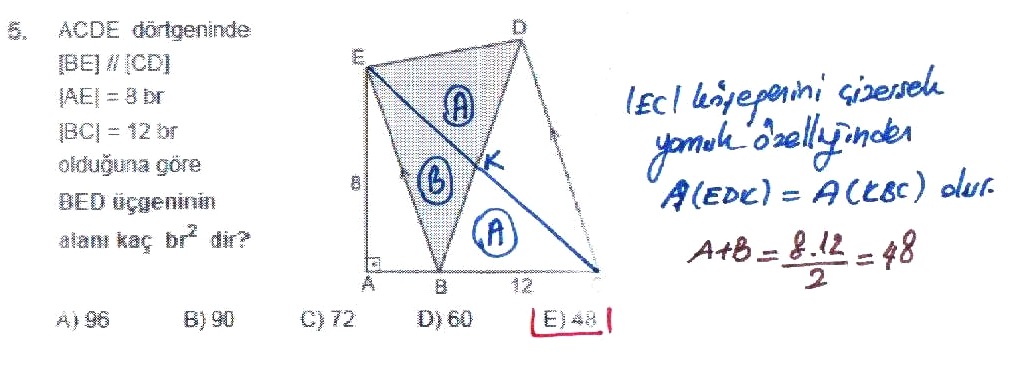 5. ACDE dörtgeninde
[BE] // [CD]
|AE| = 8 br
|BC| = 12 br
olduğuna göre
BED üçgeninin
alanı kaç br² dir?
D
E
A
K
B
8
A
A
B
12
C
|EC| köşegenini çizersek
yamuk özelliğinden
A(EDK) = A(KBC) olur.
A+B = 8.12/2 = 48
A) 96 B) 90 C) 72 D) 60 E) 48